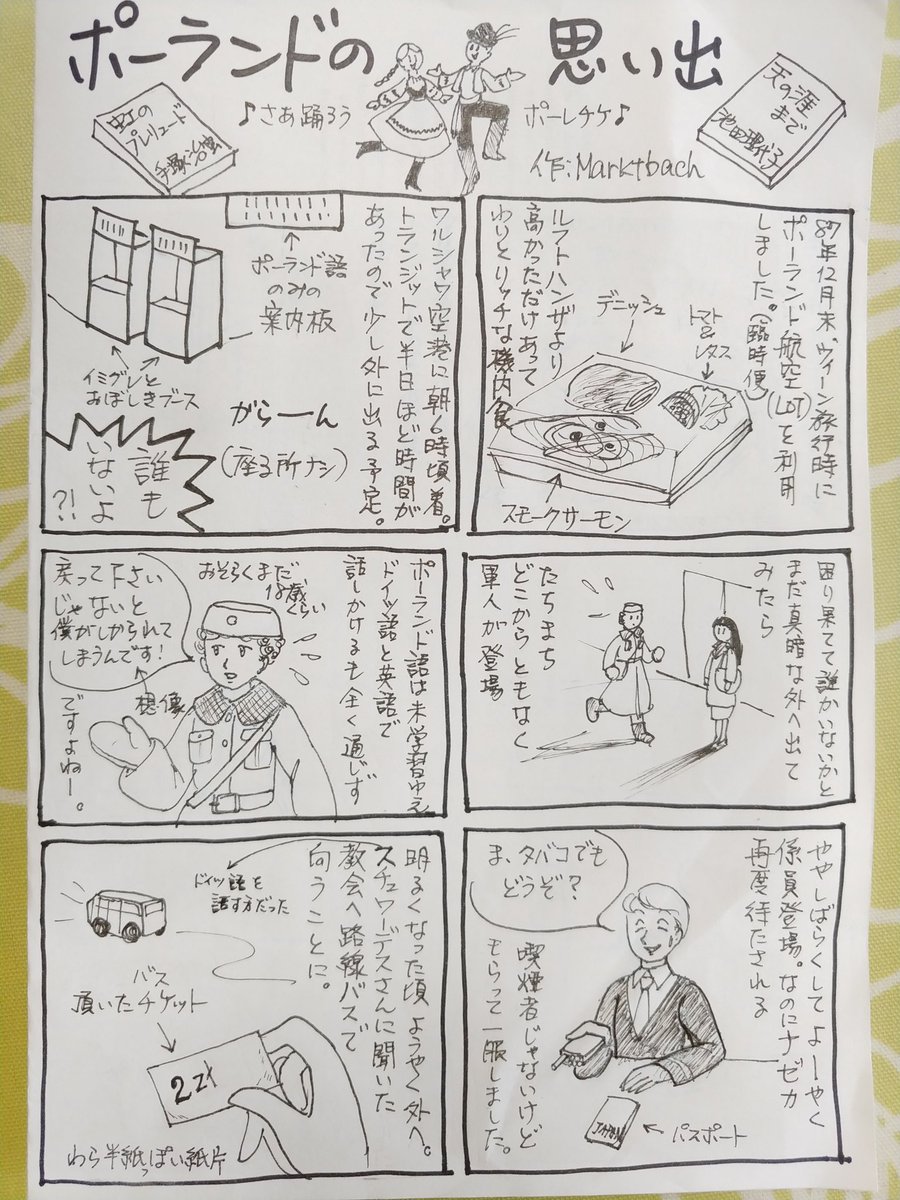 ポーランドの
思い出
虹の
プレリュード
手塚治虫
♪さあ踊ろう
ポーレチケ♪
作:Marktbach
天の涯
まで
池田理代子
87年12月末、ウィーン旅行時に
ポーランド航空(LOT)を利用
しました。(臨時便)
ルフトハンザより
高かっただけあって
わりとリッチな機内食
デニッシュ
トマト
&
レタス
スモークサーモン
ワルシャワ空港に朝6時頃着。
トランジットで半日ほど時間が
あったので少し外に出る予定。
ポーランド語
のみの
案内板
イミグレと
おぼしきブース
がらーん
(座る所ナシ)
誰も
いないよ
?!
困り果てて誰かいないかと
まだ真暗な外へ出て
みたら
たちまち
どこからともなく
軍人が登場
ポーランド語は未学習ゆえ
ドイツ語と英語で
話しかけるも全く通じず
おそらくまだ
18歳くらい
戻って下さい
じゃないと
僕がしかられて
しまうんです!
想像
ですよねー。
ややしばらくしてよーやく
係員登場。なのにナゼカ
再度待たされる
ま、タバコでも
どうぞ?
喫煙者じゃないけど
もらって一服しました。
JAPAN
パスポート
明るくなった頃ようやく外へ。
スチュワーデスさんに聞いた
教会へ路線バスで
向うことに。
ドイツ語を
話す方だった
バス
頂いたチケット
2Zł
わら半紙っぽい紙片